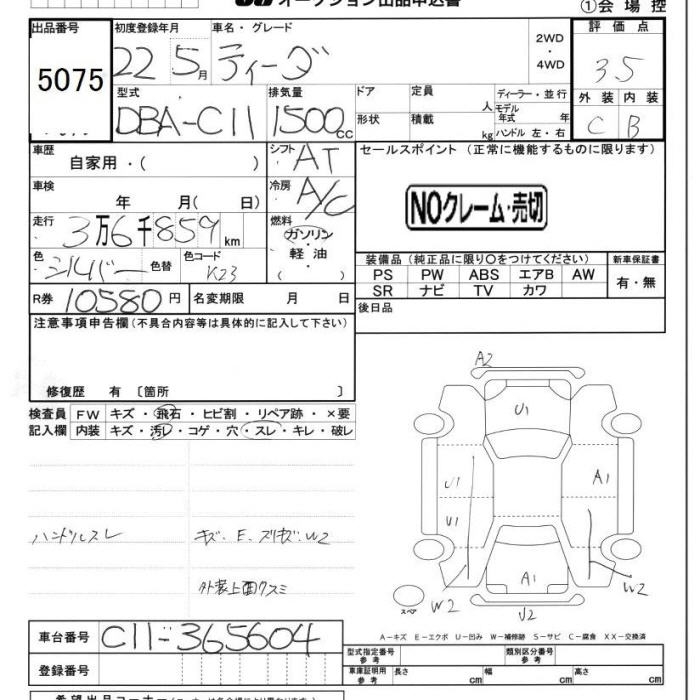 オークション出品申込書
①会場控
出品番号 初度登録年月 車名・グレード 評価点
5075 22 5月 ティーダ 2WD ・ 4WD 3.5
型式 排気量 ドア 定員 人 ディーラー・並行 外装 内装
DBA-C11 1500cc 形状 積載 kg モデル年式 年 ハンドル 左・右 C B
車歴 シフト AT セールスポイント(正常に機能するものに限ります)
自家用・( )
車検 冷房 A/C
年 月( 日)
NOクレーム・売切
走行 3万6千859km 燃料 ガソリン・軽油・( )
色 シルバー 色替 色コード K23
装備品(純正品に限り○をつけてください) 新車保証書
PS PW ABS エアB AW 有・無
SR ナビ TV カワ
R券 10580円 名変期限 月 日
後日品
注意事項申告欄(不具合内容等は具体的に記入して下さい)
修復歴 有 〔箇所 〕
検査員 FW キズ・飛石・ヒビ割・リペア跡・×要
記入欄 内装 キズ・汚レ・コゲ・穴・スレ・キレ・破レ
ハンドルスレ キズ・E・スリキズ・W2
外装上面クスミ
A2
U1
U1 A1
U1
A1
W2 W2
U2
スペア
A-キズ E-エクボ U-凹み W-補修跡 S-サビ C-腐食 XX-交換済
車台番号 C11-365604
型式指定番号 参考 類別区分番号 参考
登録番号
車庫証明用 参考 長さ cm 幅 cm 高さ cm